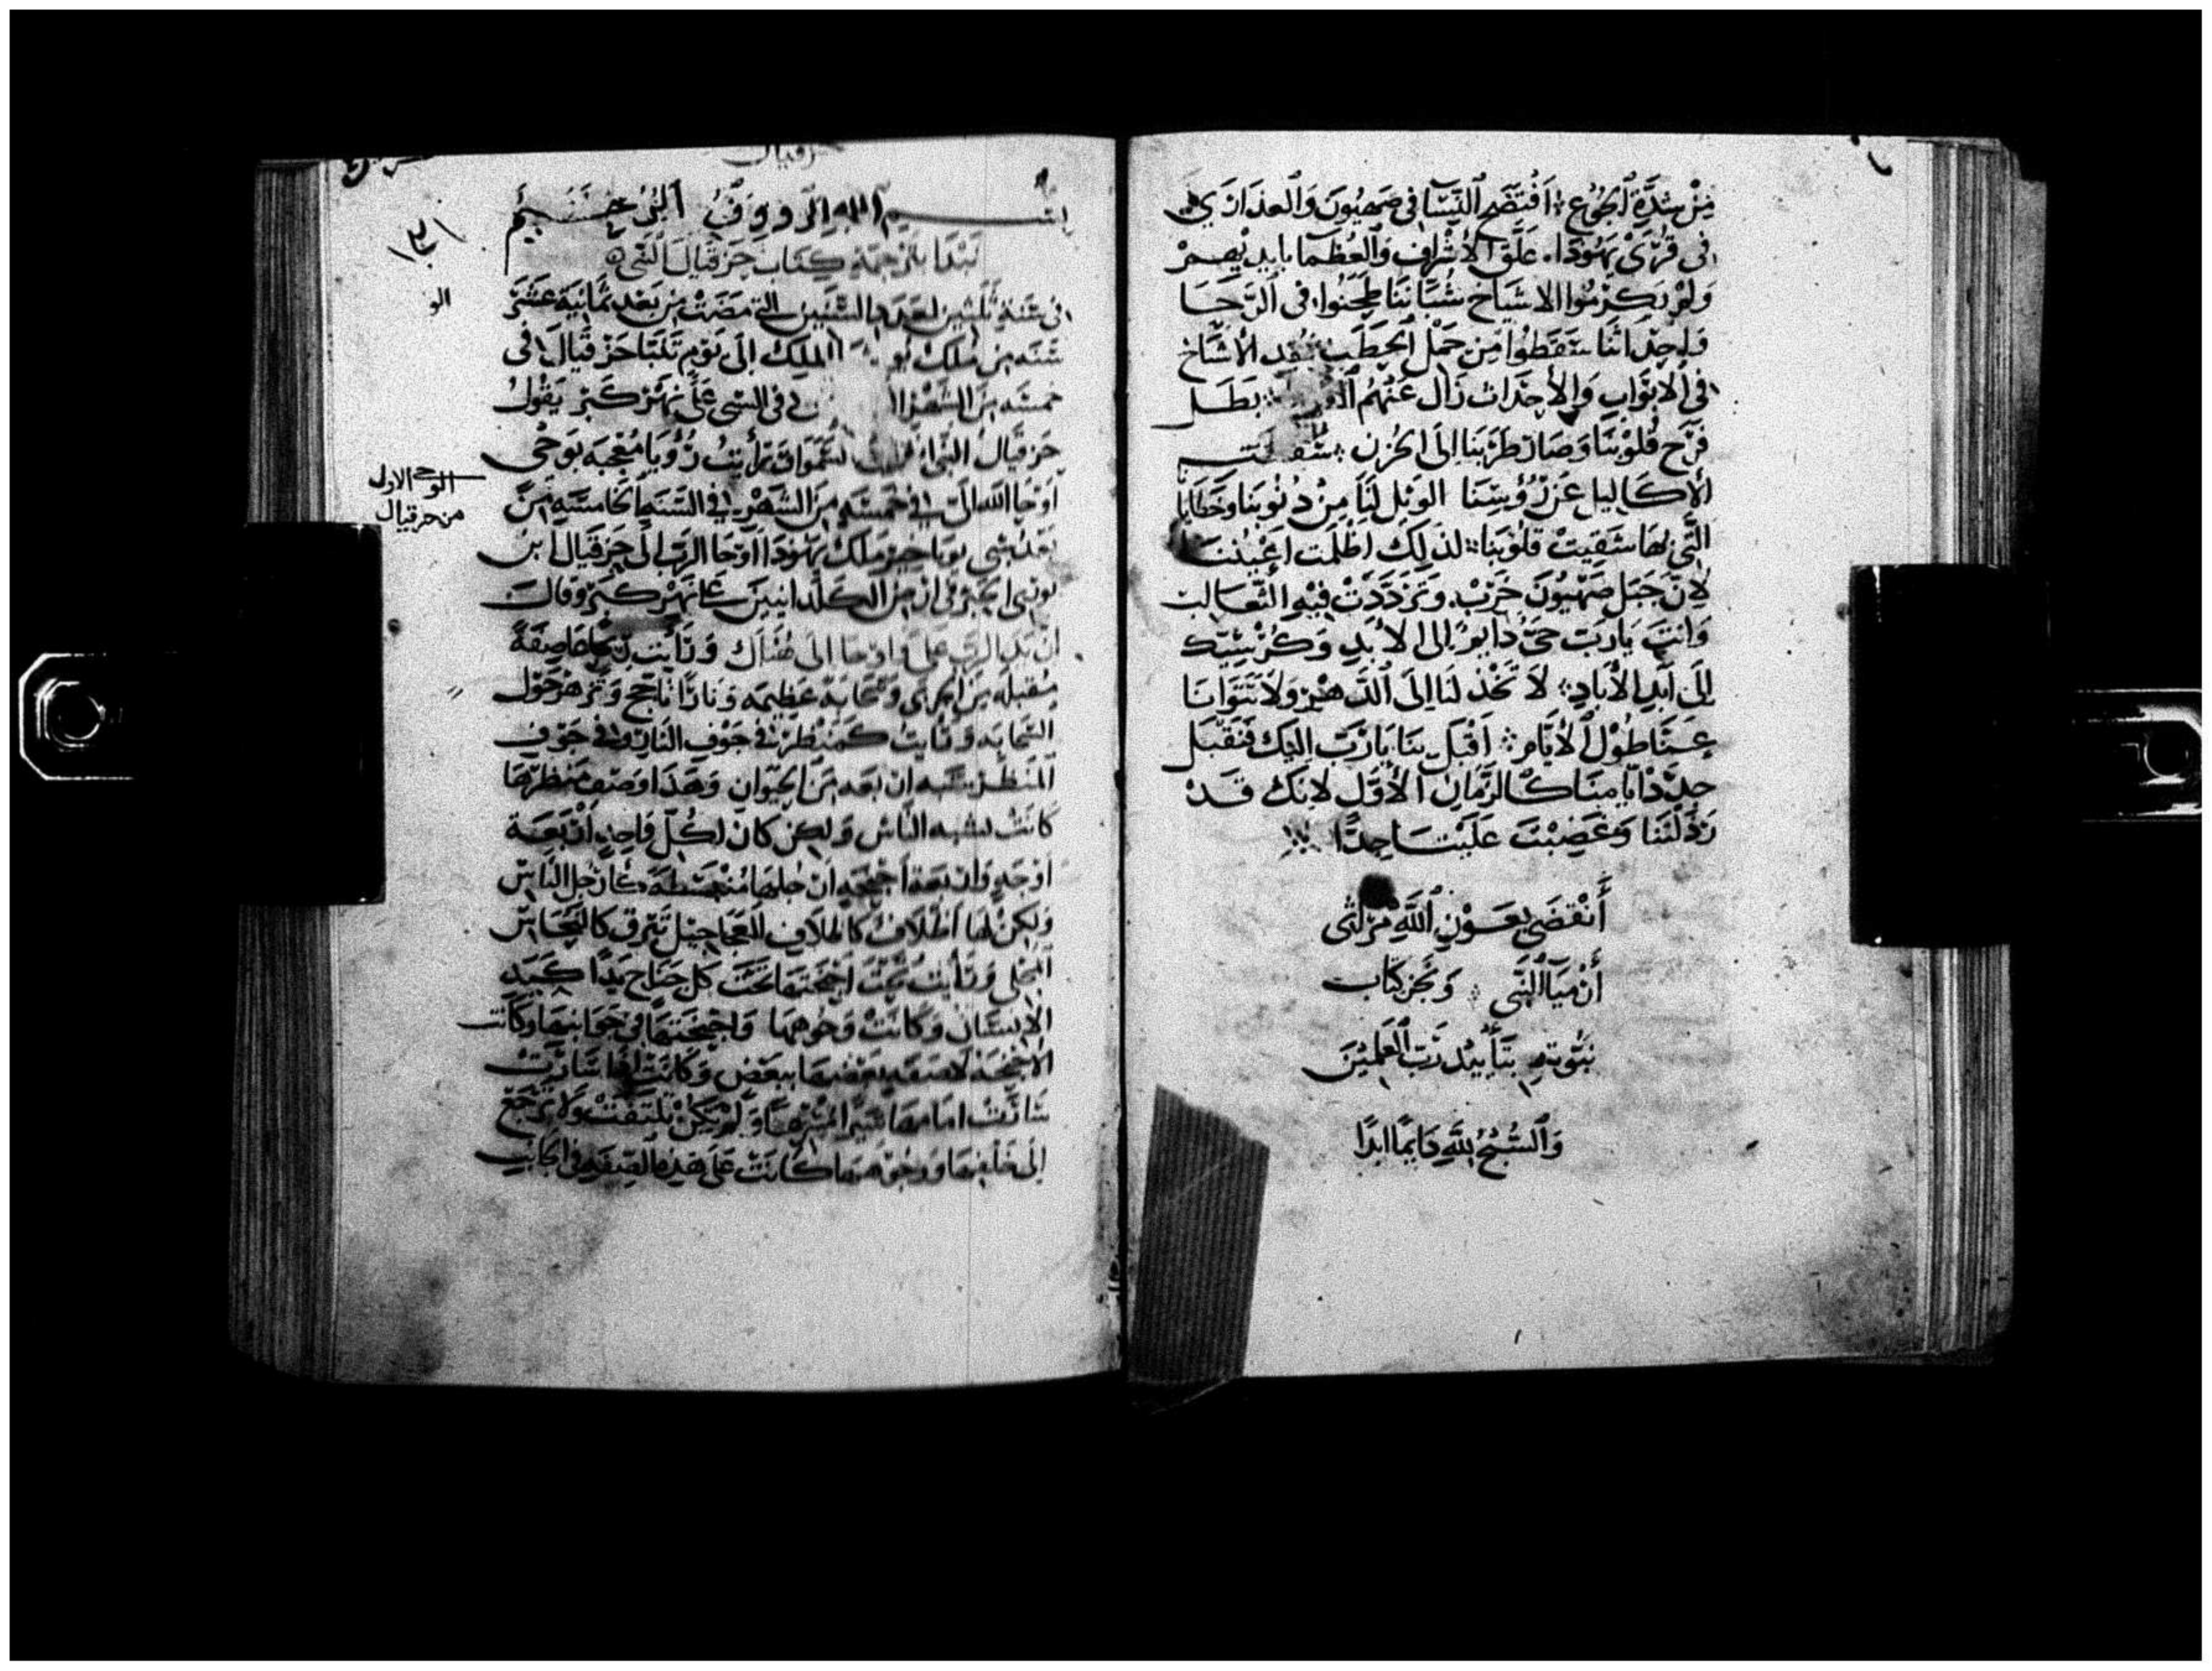 مِنْ شِدَّةِ ٱلجُوْع ۞ اَفْتَضَح النِّسَا فى صَهيُونَ وَالعذارَي
فى قُرَىْ يَهُوْدَا. عَلَّقَ الاشْرَاف وَالعُظَمَا بايديْهِمْ
وَلَمْ يَكرمُوا الاشيَاخ شُبَّانَنَا طَحَنُوا فى الرَحَا
وَاحِدَاثنا سَقَطُوا مِن حَمْل الحَطَب فُقد الأشيَاخ
فى الابوَاب وَالأحدَاث زَال عَنهُم بَطَل
فَرَح قُلُوْبنَا وَصَارَ طَرَبنَا اِلَى الحُزن سَقَطت
الأكاليل عَنْ رُؤُسِنَا الوَيْل لَنَا مِنْ ذنُوْبنَا وَخَطَايَا
الَّتى بِهَا شَقِيَتْ قلُوْبنَا لذلِكَ اظْلَمت اعْيُننَا
لاِنّ جَبَل صَهْيُونَ خَرَبْ. وَتَرَدّدَتْ فِيْهِ الثعَالب
وَانتَ يَارَبّ حَىُّ دايمٌ الى الابَدِ وَكُرْسِيّك
اِلَى اَبَدِ الأبَادِ لاَ تَخْذلنَا اِلَى ٱلدَّهْرِ وَلاَ تَتَوَانَا
عَنَّا طُوْل ٱلأيَّامِ اَقْبَل بنَا يَارَبّ اِليْك فَنَقْبَل
جدِّدْ ايّامنَا كالزَّمَان الأوَّل لانكَ قَدْ
رَذلْتَنَا وَغَضِبْتَ عَلَيْنَا جِدًّا
أَنْقَضَى بِعَوْنِ ٱللَّهِ مَرَاثى
أرْميَا ٱلنَّبى وَنَجَز كتَاب
نبُوّتهِ بتَأْييْد رَبّ العٰلَميْنَ
وَالسُّبْحُ لِلَّهِ دَايمًا ابَدًا
حزقيال
بسْم اللهِ الرَّووفُ الرَّحيْم
نَبْدَا بتَرجمَة كِتَاب حَزقيَال النَّبى
فى سَنة ثَلثين لعَدَد السّنيْن التى مَضَت من بَعْد ثمَانيَة عَشَر
سَنَه من مُلك الملِك اِلَى يَوْم تَنَبَّا حَزقيَال فى
خمسَه مِنَ الشَهْر فى السبى عَلَى نَهْر كَبَر يَقُوْل
حَزقيَال النَّبى السَّموَات وَرَأيتُ رُؤْيَا مُعْجبَه بَوحى
اوْحَا الله الىّ فى خمسَةٍ مِنَ الشهْر فى السَّنَه الخَامسَه مِنْ
بَعْد سَبى يويَاخيْن مَلك يَهُوْدَا اوْحَا الرَبّ الى حَزقيَال ابن
بوزى الحَبْر فى ارْض الكلدَانيينَ عَلَى نَهْر كبَر وَقَال
انَّ يَد الرَّبّ عَلىّ وَاوحَا الىَّ هُنَاك وَرَأيْت رِيحًا عَاصِفَةً
مُقبلَه مِنَ الجربى وَسَحَابَة عَظِيمَه وَنَارًا تَاجج وَتزهرُ حَوْل
السَّحَابَه وَرَايْت كَمَنْظر فى جَوْف النَار وَفى جَوْف
المَنظر شَبَه اربَعَه مِنَ الحَيوَان وَهَذَا وَصْف مَنْظرِهَا
كانَتْ تشبه النَّاس وَلكِن كَان لكُلّ وَاحِدٍ ارْبَعَة
اوْجهٍ وَارْبَعة اجْنحَه ارْجلهَا مُنْبَسطَة كَأرجُل النَّاس
وَلكن لهَا اظْلاف كاظلاف العَجَاجيْل تَبْرق كَالنّحَاس
المجْلى وَرَأيت تحْتَ اجْنحَتهَا تَحْت كل جَنَاح يَدًا كَيَد
الاِنسَان وَكَانَتْ وَجُوهها وَاجْنحَتهَا فى جَوَانبهَا وَكَانَت
الاجنحَة لاصقَه بَعْضهَا ببَعْض وَكانت اذَا سَارَتْ
سَارَتْ امَامهَا سَيْرًا مستويًا وَلَمْ تَكنْ تَلتَفتْ وَلا تَرْجَعْ
اِلى خَلْفهَا وَوجُوههَا كَانَتْ عَلَى هَذه الصِفَه فى الجَانب
الو
الوحى الاول
من حزقيال